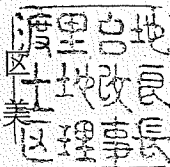 渡里台地
土地改良
区理事長
区美